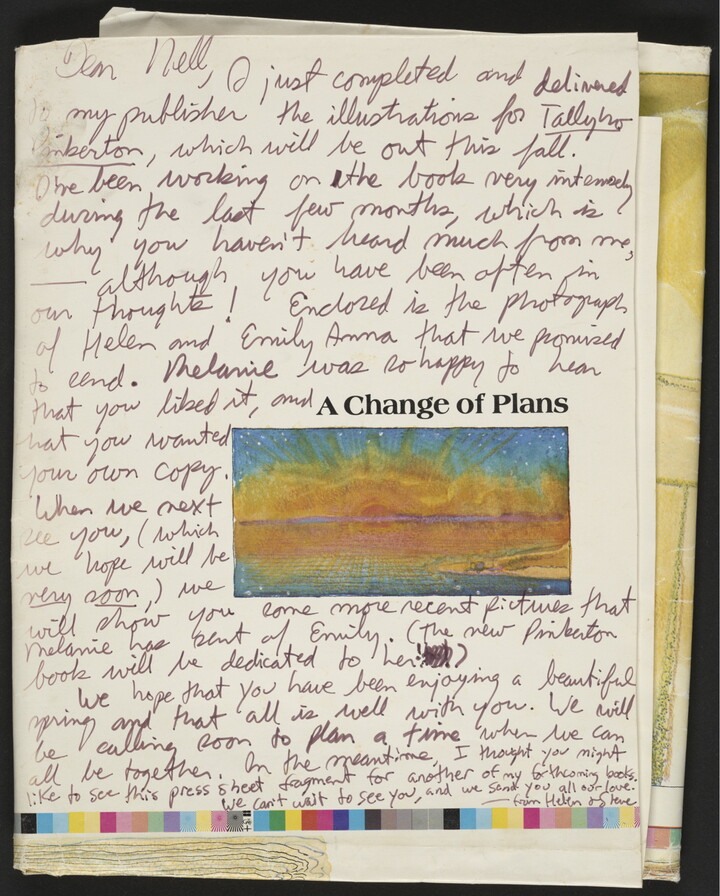 Dear Nell, I just completed and delivered
to my publisher the illustrations for Tallyho
Pinkerton, which will be out this fall.
I've been working on the book very intensely
during the last few months, which is
why you haven't heard much from me,
— although you have been often in
our thoughts! Enclosed is the photograph
of Helen and Emily Anna that we promised
to send. Melanie was so happy to hear
that you liked it, and
A Change of Plans
that you wanted
your own copy.
When we next
see you, (which
we hope will be
very soon,) we
will show you some more recent pictures that
Melanie has sent of Emily. (The new Pinkerton
book will be dedicated to her!)
We hope that you have been enjoying a beautiful
spring and that all is well with you. We will
be calling soon to plan a time when we can
all be together. In the meantime, I thought you might
like to see this press sheet fragment for another of my forthcoming books.
We can't wait to see you, and we send you all our love.
— from Helen & Steve